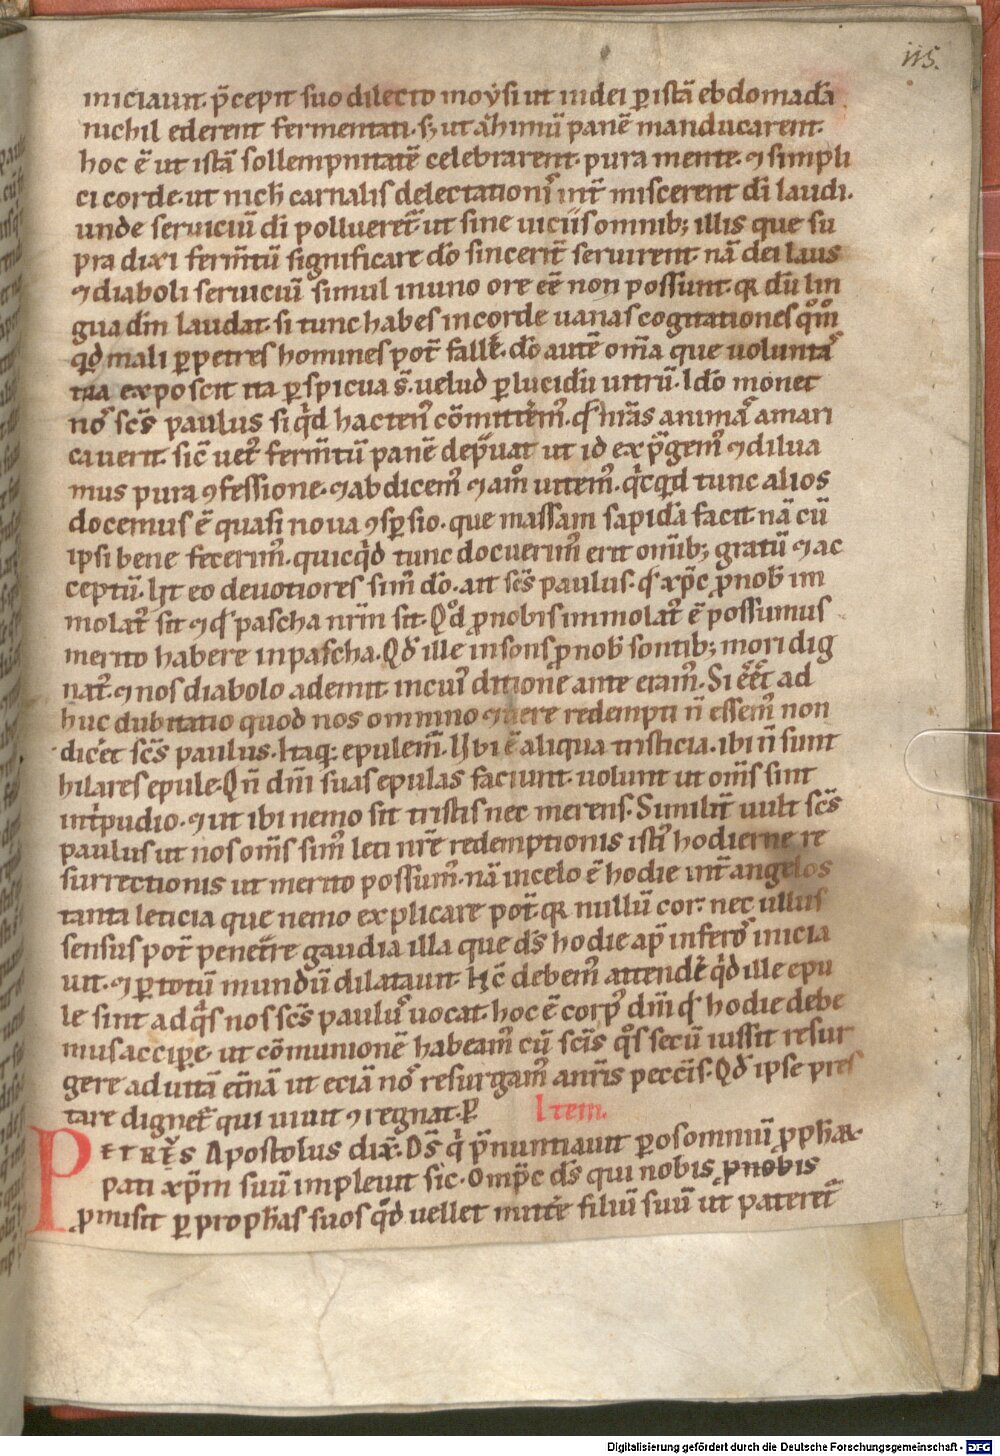 115.
miciauit. p̄cepit suo dilecto moẏsi ut iudei ꝑ istā ebdomadā
nichil ederent fermentati. sꝫ ut ah̄imū panē manducarent.
hoc ē ut istā sollempnitatē celebrarent. pura mente. ⁊ simpli
ci corde. ut nich̄ carnalis delectationis int̄ miscerent dī laudi.
unde seruiciū dī pollueret᷑. ut sine uiciis omnibꝫ illis que su
pra dixi ferm̄tū significare dō sincerit̄ seruirent. nā dei laus
⁊ diaboli seruiciū simul in uno ore eē non possunt. qꝛ dū lin
gua dm̄ laudat. si tunc habes in corde uanas cogitationes qͦmͦ
qd̄ mali ꝑpetres homines pot̄ falle᷑. dō autē om̄a que uolunta
tua exposcit ita ꝑspicua s̄. uelud ꝑ lucidū uitrū. Ido monet
nos sc̄s paulus si qͥd hacten᷒ cōmittem᷒. qd̄ nr̄as animas amari
cauerit. sic̄ uet᷒ ferm̄tū panē dep̄uat ut id expurgem᷒ ⁊ dilua
mus pura ꝯfessione. ⁊ abdicem᷒ ⁊ am᷒ uitem᷒. qͥcqͥd tunc alios
docemus ē quasi noua ꝯsꝑsio. que massam sapidā facit. nā cū
ipsi bene fecerim᷒. quicqͥd tunc docuerim᷒ erit om̄ibꝫ gratū ⁊ ac
ceptū. Ut eo deuotiores sim᷒ dō. ait sc̄s paulus. qd̄ xp̄c ꝓ nob̄ im
molat᷒ sit ⁊ qd̄ pascha nr̄m sit. Qd̄ ꝓ nobis immolat᷒ ē possumus
merito habere in pascha. Qd̄ ille insons ꝓ nob̄ sontibꝫ mori dig
nat᷒. ⁊ nos diabolo ademit. in cui᷒ ditione ante eram᷒. Si eēt ad
huc dubitatio quod nos omnino ⁊ uere redempti n̄ essem᷒ non
dicet sc̄s paulus. Itaqꝫ epulem᷒. Ubi ē aliqua tristicia. ibi n̄ sunt
hilares epule. Qn̄ dn̄i suas epulas faciunt. uolunt ut om̄s sint
in tͥpudio. ⁊ ut ibi nemo sit tristis nec merens. Similit̄ uult sc̄s
paulus ut nos om̄s sim᷒ leti nr̄e redemptionis isti᷒ hodierne re
surrectionis ut merito possum᷒. nā in celo ē hodie int̄ angelos
tanta leticia que nemo explicare pot̄. qꝛ nullū cor. nec ullus
sensus pot̄ penetr̄e gaudia illa que ds̄ hodie ap̄ inferos inicia
uit. ⁊ ꝑ totū mundū dilatauit. Hc̄ debem᷒ attende᷑ qͥd ille epu
le sint ad qͣs nos sc̄s paulus uocat. hoc ē corp᷒ dn̄i qd̄ hodie debe
mus acciꝑe. ut cōmunionē habeam᷒ cū sc̄is qͦs secū iussit resur
gere ad uitā et̄nā ut eciā nos resurgam᷒ a nr̄is pecc̄is. Qd̄ ipse pres
tare dignet᷑ qui uiuit ⁊ regnat. ꝑ Item.
Petrus Apostolus dix̄. Ds̄ qͥ p̄nuntiauit ꝑ os omniū ꝓph̄aꝝ.
pati xp̄m suū impleuit sic. Omp̄c ds̄ qui nobis ꝓ nobis
ꝓmisit ꝑ proph̄as suos qd̄ uellet mitte᷑ filiū suū ut pateret᷑
Digitalisierung gefördert durch die Deutsche Forschungsgemeinschaft - DFG